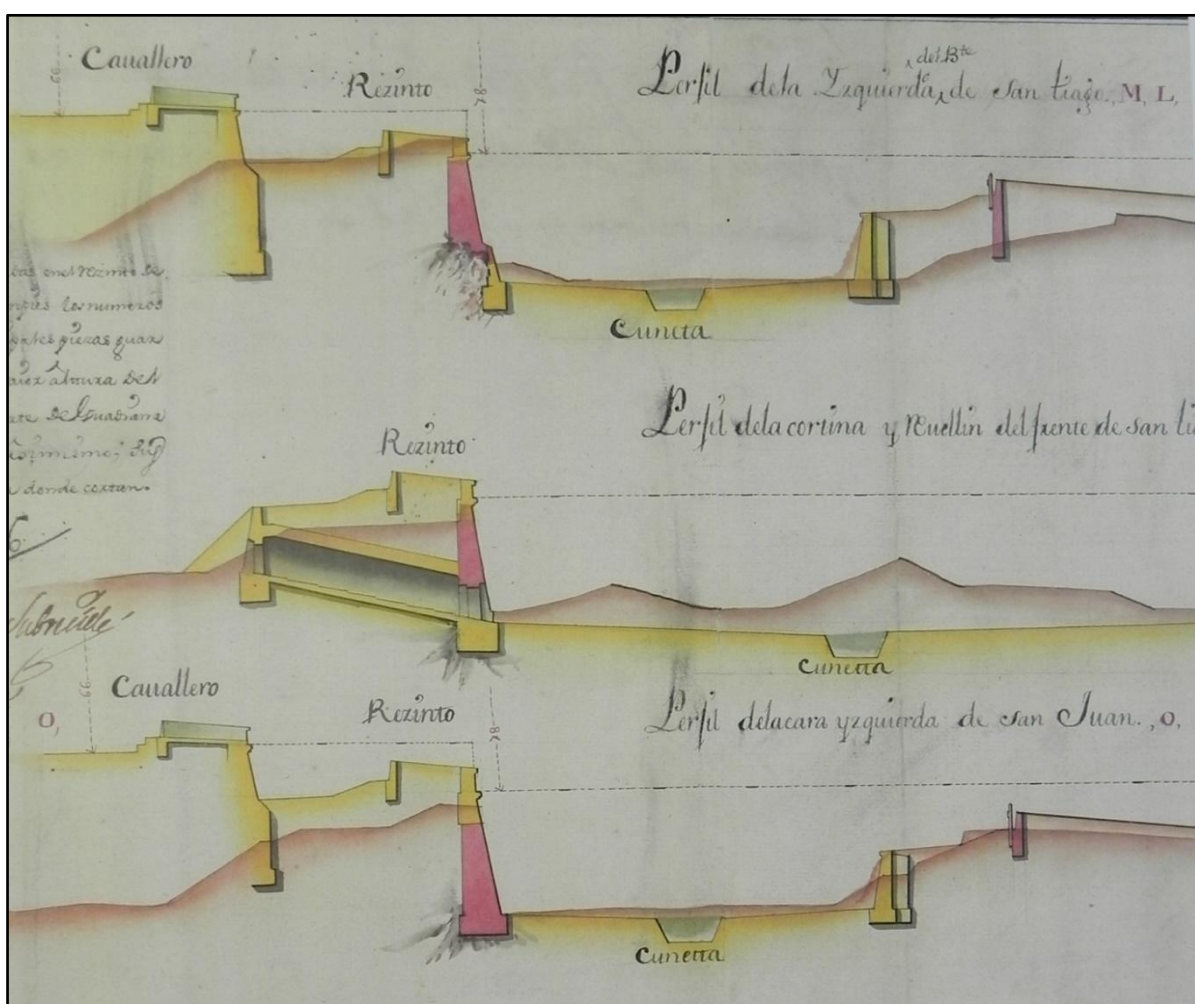 Cauallero
Rezinto
Perfil dela Yzquierda de San tiago., M, L,
del Bte
99
78
Cuneta
los numeros
piezas
altura del
donde cortan.
Rezinto
Perfil dela cortina y Reuellin del frente de San ti
Cunetta
99
Cauallero
Rezinto
78
O,
Perfil delacara yzquierda de San Juan. , O,
Cunetta